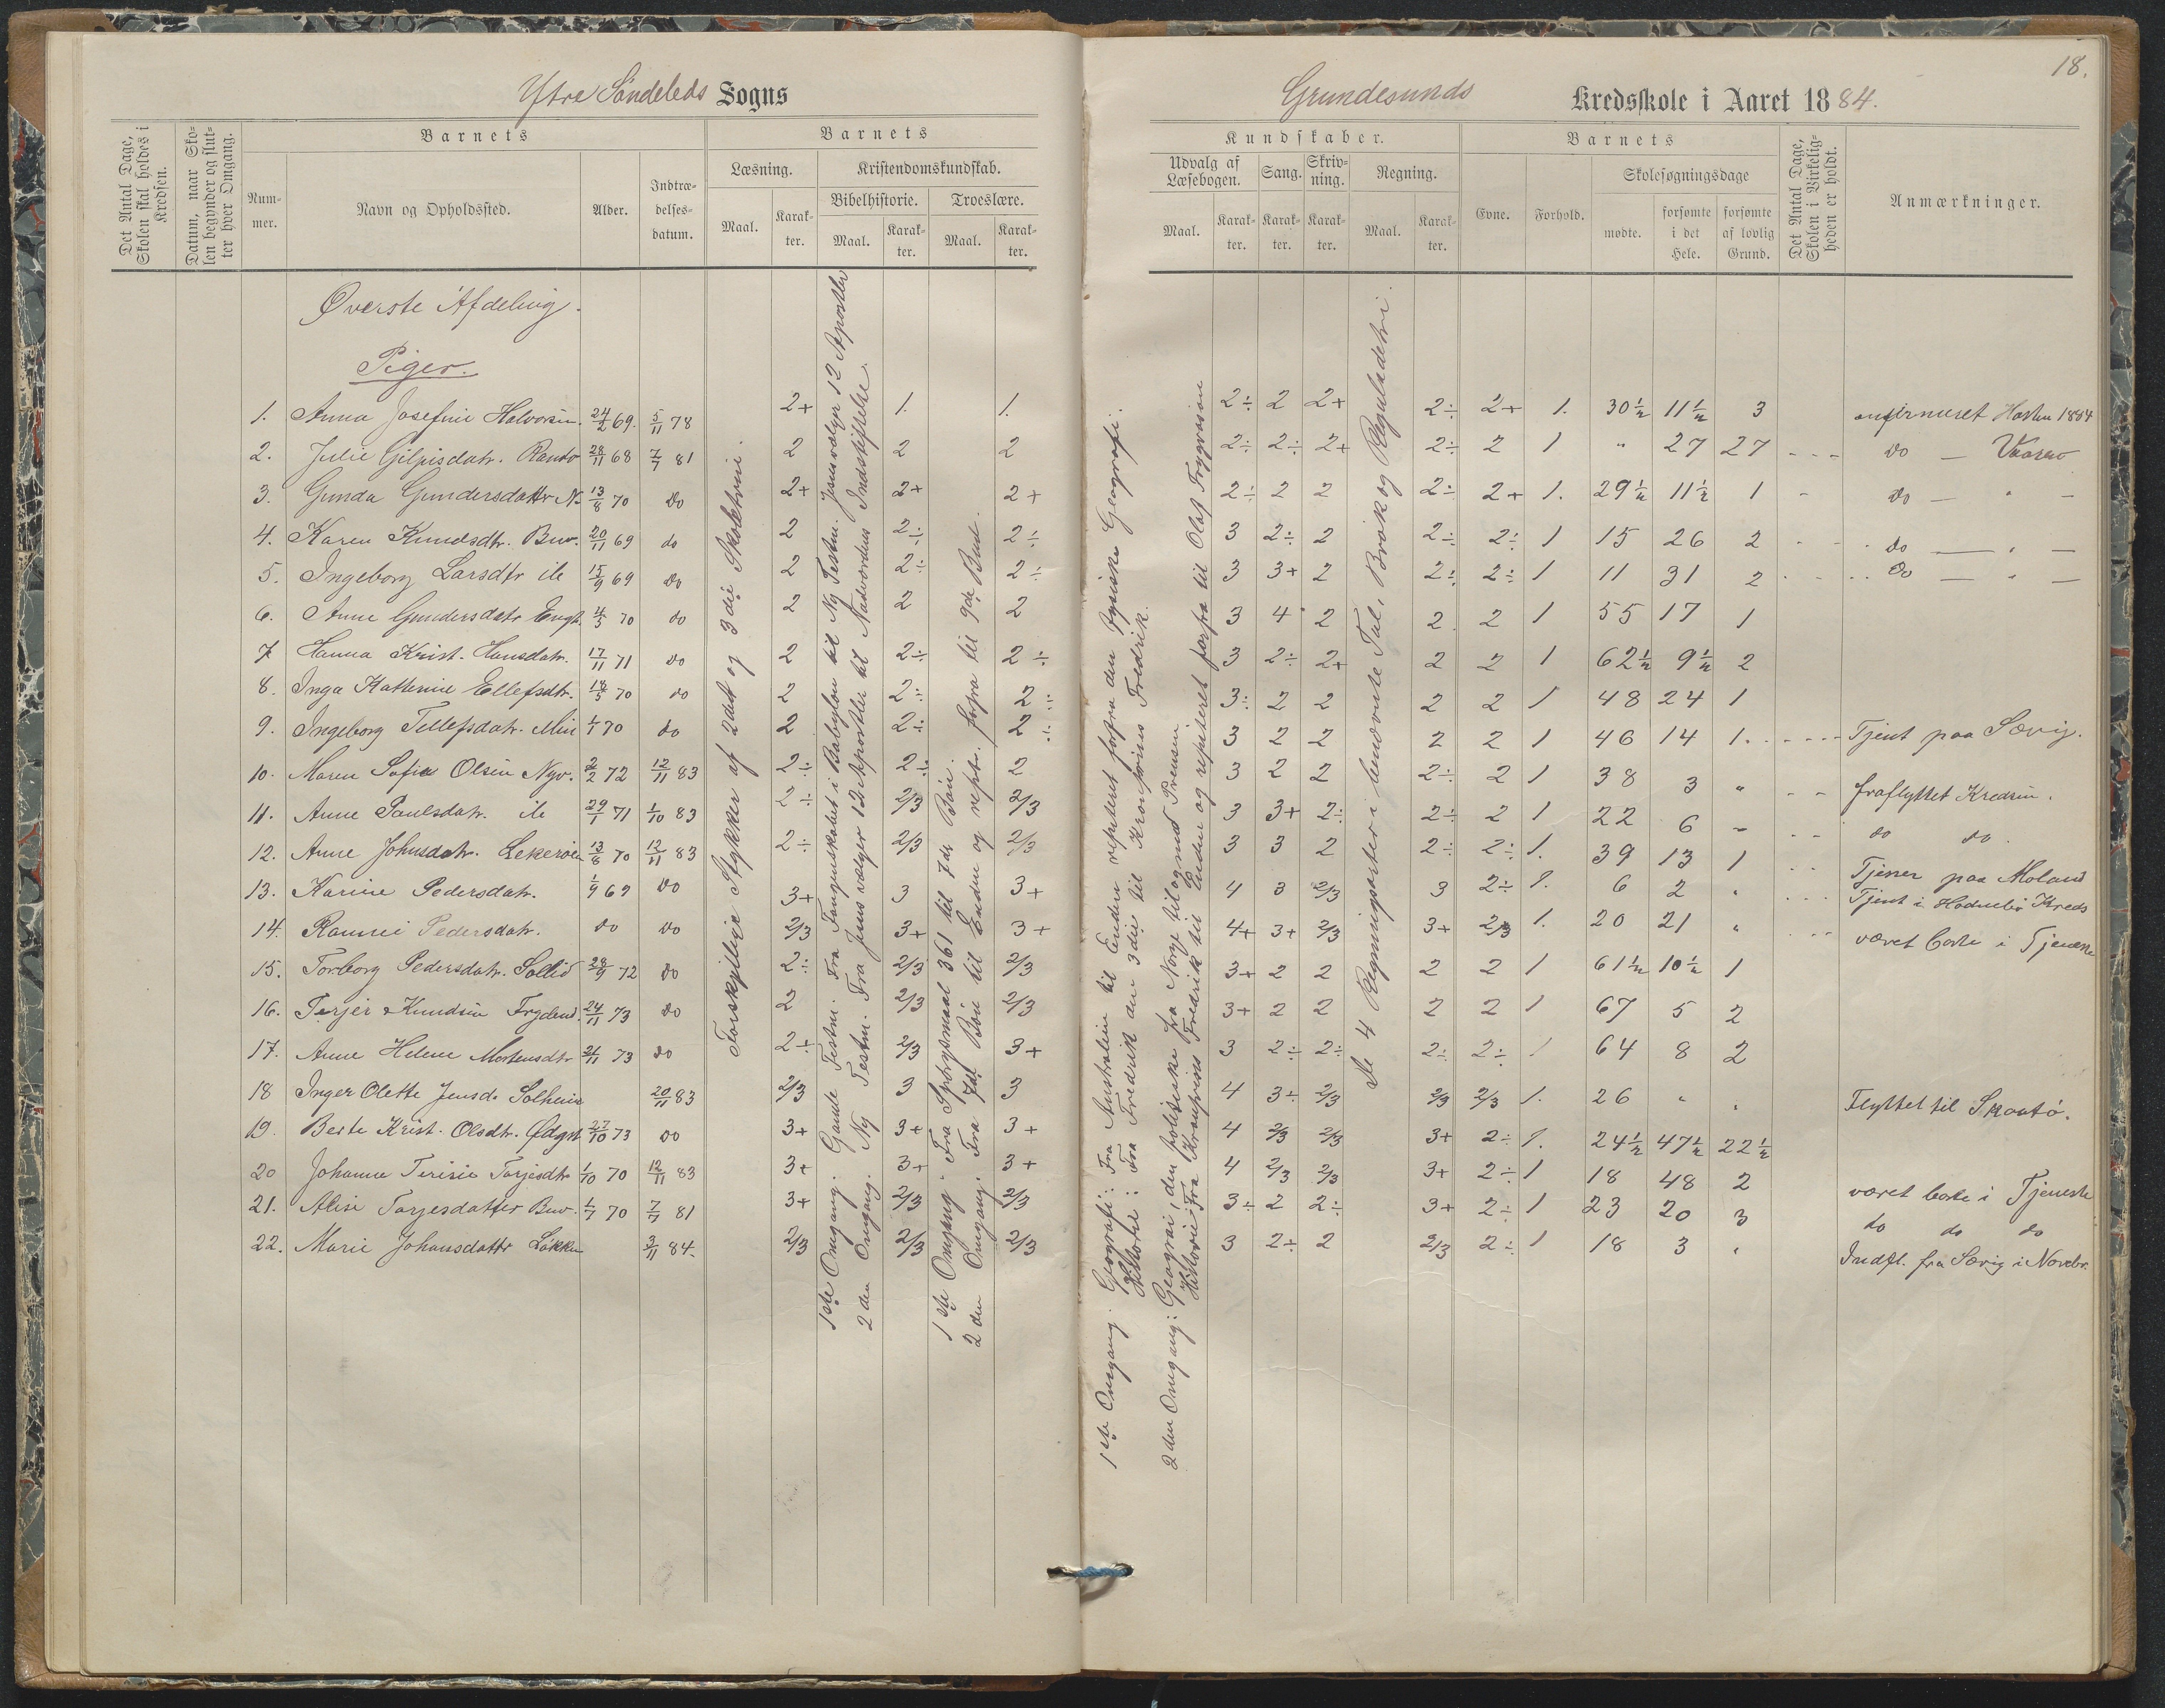 18.
Ytre Söndeleds Sogns
Grundesunds Kredsskole i Aaret 1884.
Det Antal Dage, Skolen skal holdes i Kredsen.
Datum, naar Skolen begynder og slutter hver Omgang.
Barnets
Nummer.
Navn og Opholdssted.
Alder.
Indtrædelsesdatum.
Barnets
Læsning.
Maal.
Karakter.
Kristendomskundskab.
Bibelhistorie.
Maal.
Karakter.
Troeslære.
Maal.
Karakter.
Kundskaber.
Udvalg af Læsebogen.
Maal.
Karakter.
Sang.
Karakter.
Skrivning.
Karakter.
Regning.
Maal.
Karakter.
Barnets
Evne.
Forhold.
Skolesøgningsdage
mødte.
forsømte i det Hele.
forsømte af lovlig Grund.
Det Antal Dage, Skolen i Virkeligheden er holdt.
Anmærkninger.
Øverste Afdeling.
Piger.
1. Anna Josefine Halvorsen. 24/2 69. 5/11 78 2+ 1. 1. 2÷ 2 2+ 2÷ 2+ 1. 30½ 11½ 3 Høsten 1884
2. Julie Gilpisdatr. Randv 28/11 68 7/7 81 2 2 2 2÷ 2÷ 2+ 2÷ 2 1 " 27 27 do — Vaaren
3. Gunda Gundersdattr N. 13/8 70 do 2+ 2+ 2+ 2÷ 2 2 2÷ 2+ 1. 29½ 11½ 1 do — " —
4. Karen Knudsdtr. Buv. 20/11 69 do 2 2÷ 2÷ 3 2÷ 2 2÷ 2÷ 1 15 26 2 do — " —
5. Ingeborg Larsdtr ile 15/9 69 do 2 2÷ 2÷ 3 3+ 2 2÷ 2÷ 1 11 31 2 do — " —
6. Anne Gundersdatr Engt. 4/5 70 do 2 2 2 3 4 2 2 2 1 55 17 1
7. Hanna Krist. Hansdatr. 17/11 71 do 2 2÷ 2÷ 3 2÷ 2+ 2 2 1 62½ 9½ 2
8. Inga Katherine Ellefsdtr. 18/5 70 do 2 2÷ 2÷ 3÷ 2 2 2 2 1 48 24 1
9. Ingeborg Tellefsdatr. Min 1/1 70 do 2 2÷ 2÷ 3 2 2 2 2 1 46 14 1. Tjent paa Sævig.
10. Maren Sofie Olsen Nyv. 2/2 72 12/11 83 2÷ 2÷ 2 3 2 2 2÷ 2 1 38 3 " fraflyttet Kredsen.
11. Anne Paulsdatr. ile 29/1 71 1/10 83 2÷ 2/3 2/3 3 3+ 2÷ 2÷ 2 1 22 6 " do do
12. Anne Johnsdatr. Lekeröen 13/8 70 12/11 83 2÷ 2/3 2/3 3 3 2 2÷ 2÷ 1. 39 13 1 Tjener paa Moland
13. Karine Pedersdatr. 1/9 69 do 3+ 3 3+ 4 3 2/3 3 2÷ 1. 6 2 " Tjent i Kreds
14. Pedersdatr. do do 2/3 3+ 3+ 4+ 3+ 2/3 3+ 2/3 1. 20 21 " været borte i Tjeneste
15. Torborg Pedersdatr. Sollid 28/9 72 do 2÷ 2/3 2/3 3+ 2 2 2 2 1 61½ 10½ 1
16. Terjer Knudsen Frydend. 24/11 73 do 2 2/3 2/3 3+ 2 2 2 2 1 67 5 2
17. Anne Helene Mortensdtr 21/11 73 do 2÷ 2/3 3+ 3 2÷ 2÷ 2÷ 2÷ 1 64 8 2
18 Inger Olette Jensd. Solheim 20/11 83 2/3 3 3 4 3÷ 2/3 2/3 2/3 1. 26 " " Flyttet til Skaatö.
19. Berte Krist. Olsdtr. Ødgrd 27/10 73 do 3+ 3+ 3+ 4 2/3 2/3 3+ 2÷ 1. 24½ 47½ 22½
20 Johanne Terisie Torjesdtr 1/10 70 12/11 83 3+ 3+ 3+ 4 2/3 2/3 3+ 2÷ 1 18 48 2 været borte i Tjeneste
21. Alise Torjesdatter Buv. 1/7 70 7/7 81 3+ 2/3 2/3 3÷ 2 2÷ 3+ 2÷ 1 23 20 3 do do do
22. Marie Johansdattr Løkken 3/11 84. 2/3 2/3 2/3 3 2÷ 2 2/3 2÷ 1 18 3 " Indfl. fra Sævig i Novbr.
Forskjellige Stykker af 2det og 3die Skoletrin.
1ste Omgang. Gamle Testm. Fra Fangenskabet i Babylon til Ny Testm. Jesus vælger 12 Apostler
2den Omgang. Ny Testm. Fra Jesus vælger 12 Apostler til Nadverdens Indstiftelse.
1ste Omgang. Fra Spörgsmaal 361 til 7de Bön.
2den Omgang. Fra 7de Bön til Enden og rept. forfra til 9de Bud.
1ste Omgang. Geografi: Fra Australien til Enden repeteret forfra den fysiske Geografi.
Historie: Fra Fredrik den 3die til Kronprins Fredrik.
2den Omgang: Geografi, den politiske fra Norge til og med Preusen.
Historie: Fra Kronprins Fredrik til Enden og repeteret forfra til Olaf Trygvason
De 4 Regningsarter i benævnte Tal, Brök og Reguladetri.